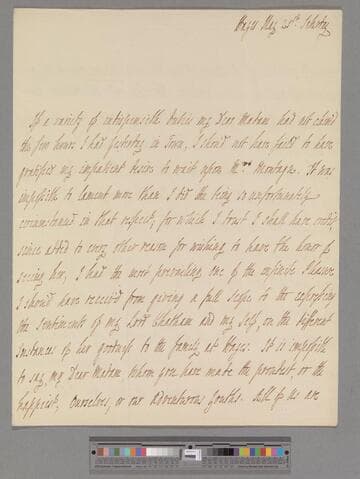 Hayes May 25th Saturday
If a variety of indispensible duties my Dear Madam had not claim'd
the few hours I had yesterday in Town, I should not have fail'd to have
gratified my impatient desire to wait upon Mrs Montagu. It was
impossible to lament more than I did the being so unfortunately
circumstanced in that respect; for which I trust I shall have credit,
since added to every other reason for wishing to have the honor of
seeing her, I had the most prevailing one of the infinite pleasure
I should have receiv'd from giving a full scope to the expressing
the sentiments of my Lord Chatham and my self, on the different
instances of her goodness to the family at Hayes. It is impossible
to say, my Dear Madam whom you have made the proudest, or the
happiest, Ourselves, or our Adventurous Youths. All of us are